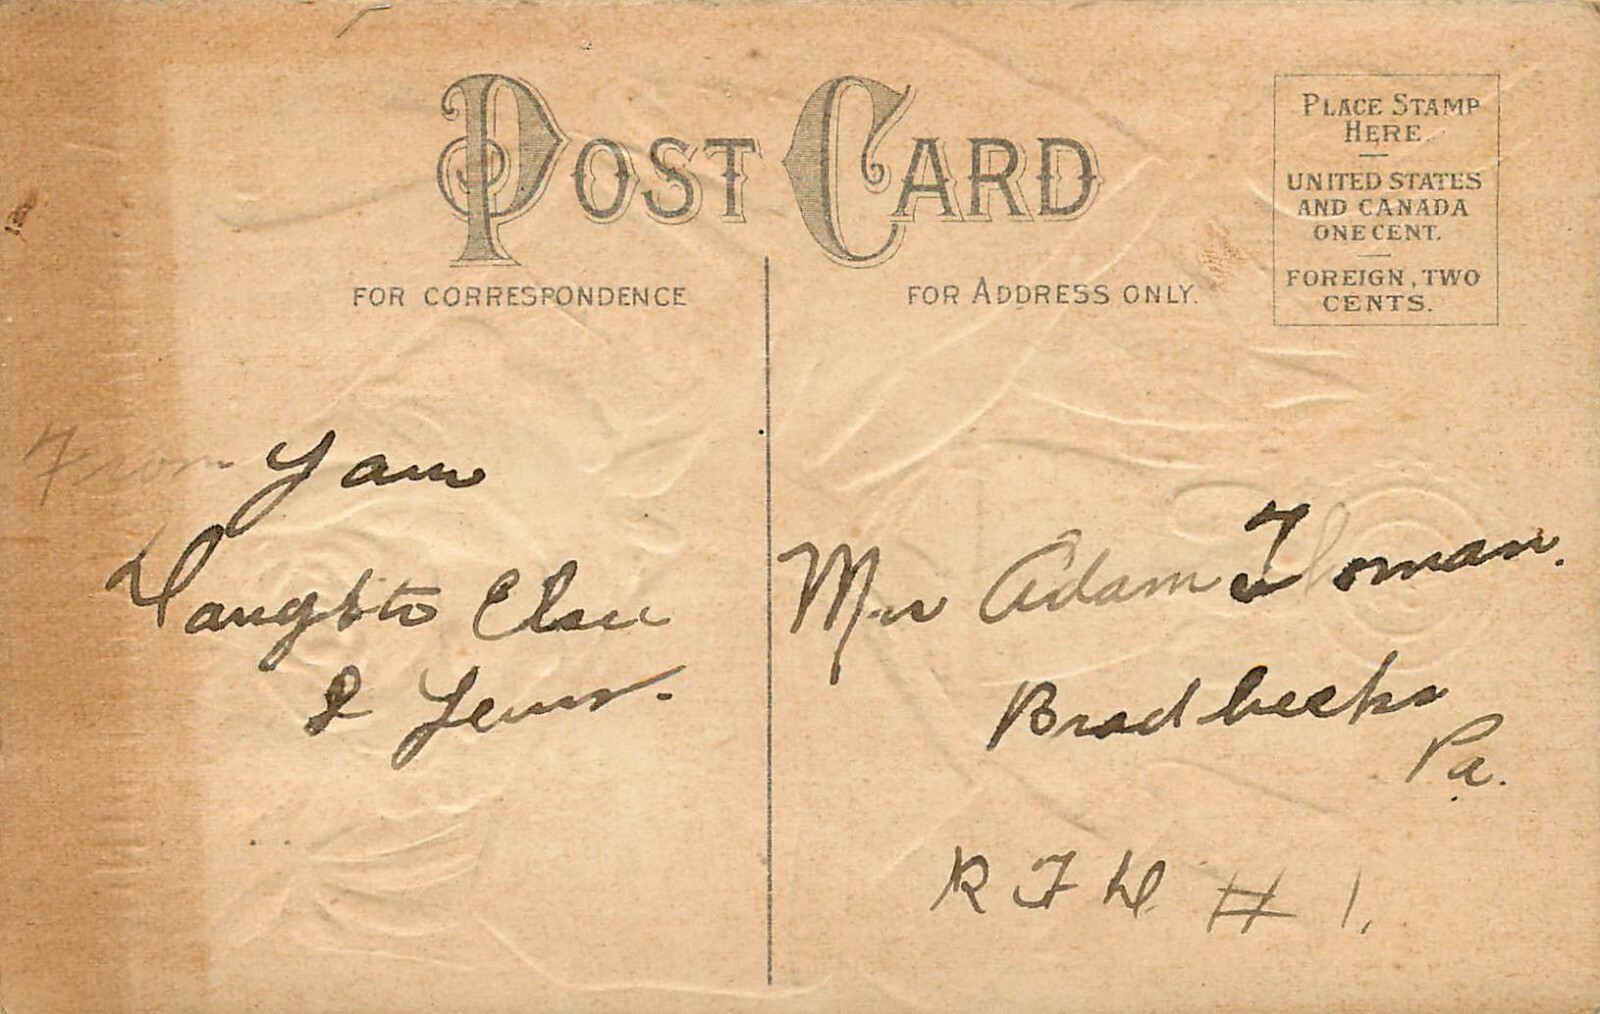 POST CARD
FOR CORRESPONDENCE
FOR ADDRESS ONLY.
PLACE STAMP
HERE.
UNITED STATES
AND CANADA
ONE CENT.
FOREIGN, TWO
CENTS.
From Your
Daughte Elsie
& Lewis.
Mr Adam Floman.
Bradbecks
Pa.
R F D # 1.